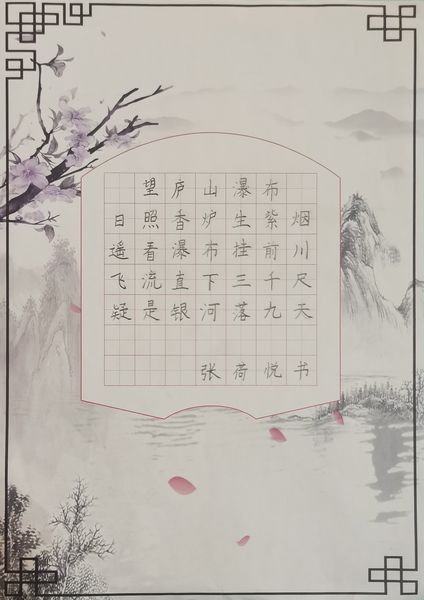 望庐山瀑布
日照香炉生紫烟
遥看瀑布挂前川
飞流直下三千尺
疑是银河落九天
张荷悦书